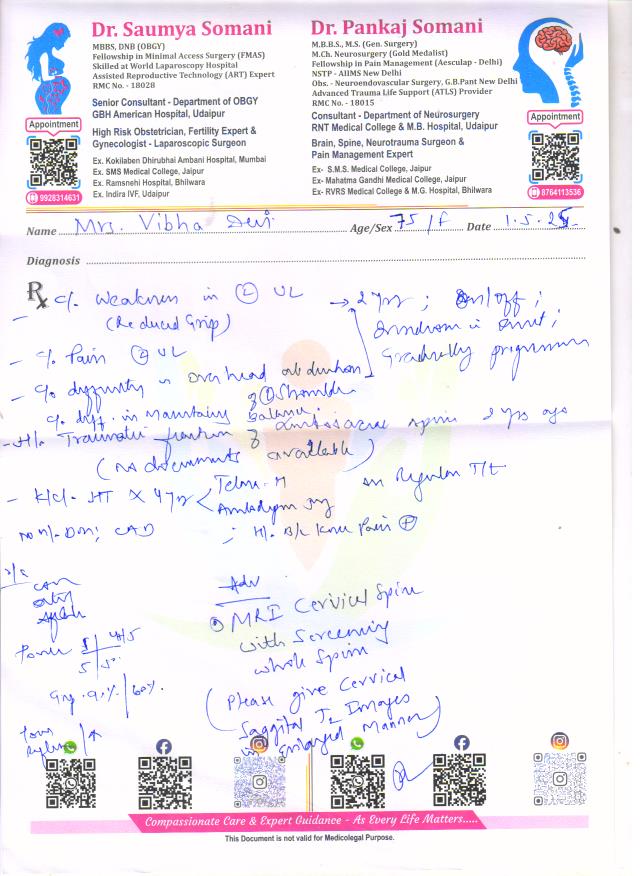 Dr. Saumya Somani
MBBS, DNB (OBGY)
Fellowship in Minimal Access Surgery (FMAS)
Skilled at World Laparoscopy Hospital
Assisted Reproductive Technology (ART) Expert
RMC No. - 18028
Senior Consultant - Department of OBGY
GBH American Hospital, Udaipur
High Risk Obstetrician, Fertility Expert &
Gynecologist - Laparoscopic Surgeon
Ex. Kokilaben Dhirubhai Ambani Hospital, Mumbai
Ex. SMS Medical College, Jaipur
Ex. Ramsnehi Hospital, Bhilwara
Ex. Indira IVF, Udaipur
Appointment
9928314631
Dr. Pankaj Somani
M.B.B.S., M.S. (Gen. Surgery)
M.Ch. Neurosurgery (Gold Medalist)
Fellowship in Pain Management (Aesculap - Delhi)
NSTP - AIIMS New Delhi
Obs. - Neuroendovascular Surgery, G.B.Pant New Delhi
Advanced Trauma Life Support (ATLS) Provider
RMC No. - 18015
Consultant - Department of Neurosurgery
RNT Medical College & M.B. Hospital, Udaipur
Brain, Spine, Neurotrauma Surgeon &
Pain Management Expert
Ex- S.M.S. Medical College, Jaipur
Ex- Mahatma Gandhi Medical College, Jaipur
Ex- RVRS Medical College & M.G. Hospital, Bhilwara
Appointment
8764113536
Name Mrs. Vibha Devi Age/Sex 75/F Date 1.5.25
Diagnosis
Rx c/o Weakness in (L) UL → 2 yrs ; on/off ;
(Reduced Grip)
Gradually progressive
- c/o Pain UL
- c/o difficulty in overhead abduction
of (L) Shoulder
c/o diff. in maintaing balance.
- H/o Traumatic fracture of lumbosacral spine 2 yrs ago
(no documents available)
- K/c/o HT x 4 yrs Telma-H on Regular T/t
Amlodipin 5mg
No H/o DM, CAD ; H/o B/L Knee Pain (+)
Adv
MRI Cervical Spine
with Screening
whole Spine
(Please give Cervical
Saggital T2 Images
in enlarged Manner)
Power 5 | 4/5
5 | 5
Grip 90% | 60%
Compassionate Care & Expert Guidance - As Every Life Matters.....
This Document is not valid for Medicolegal Purpose.